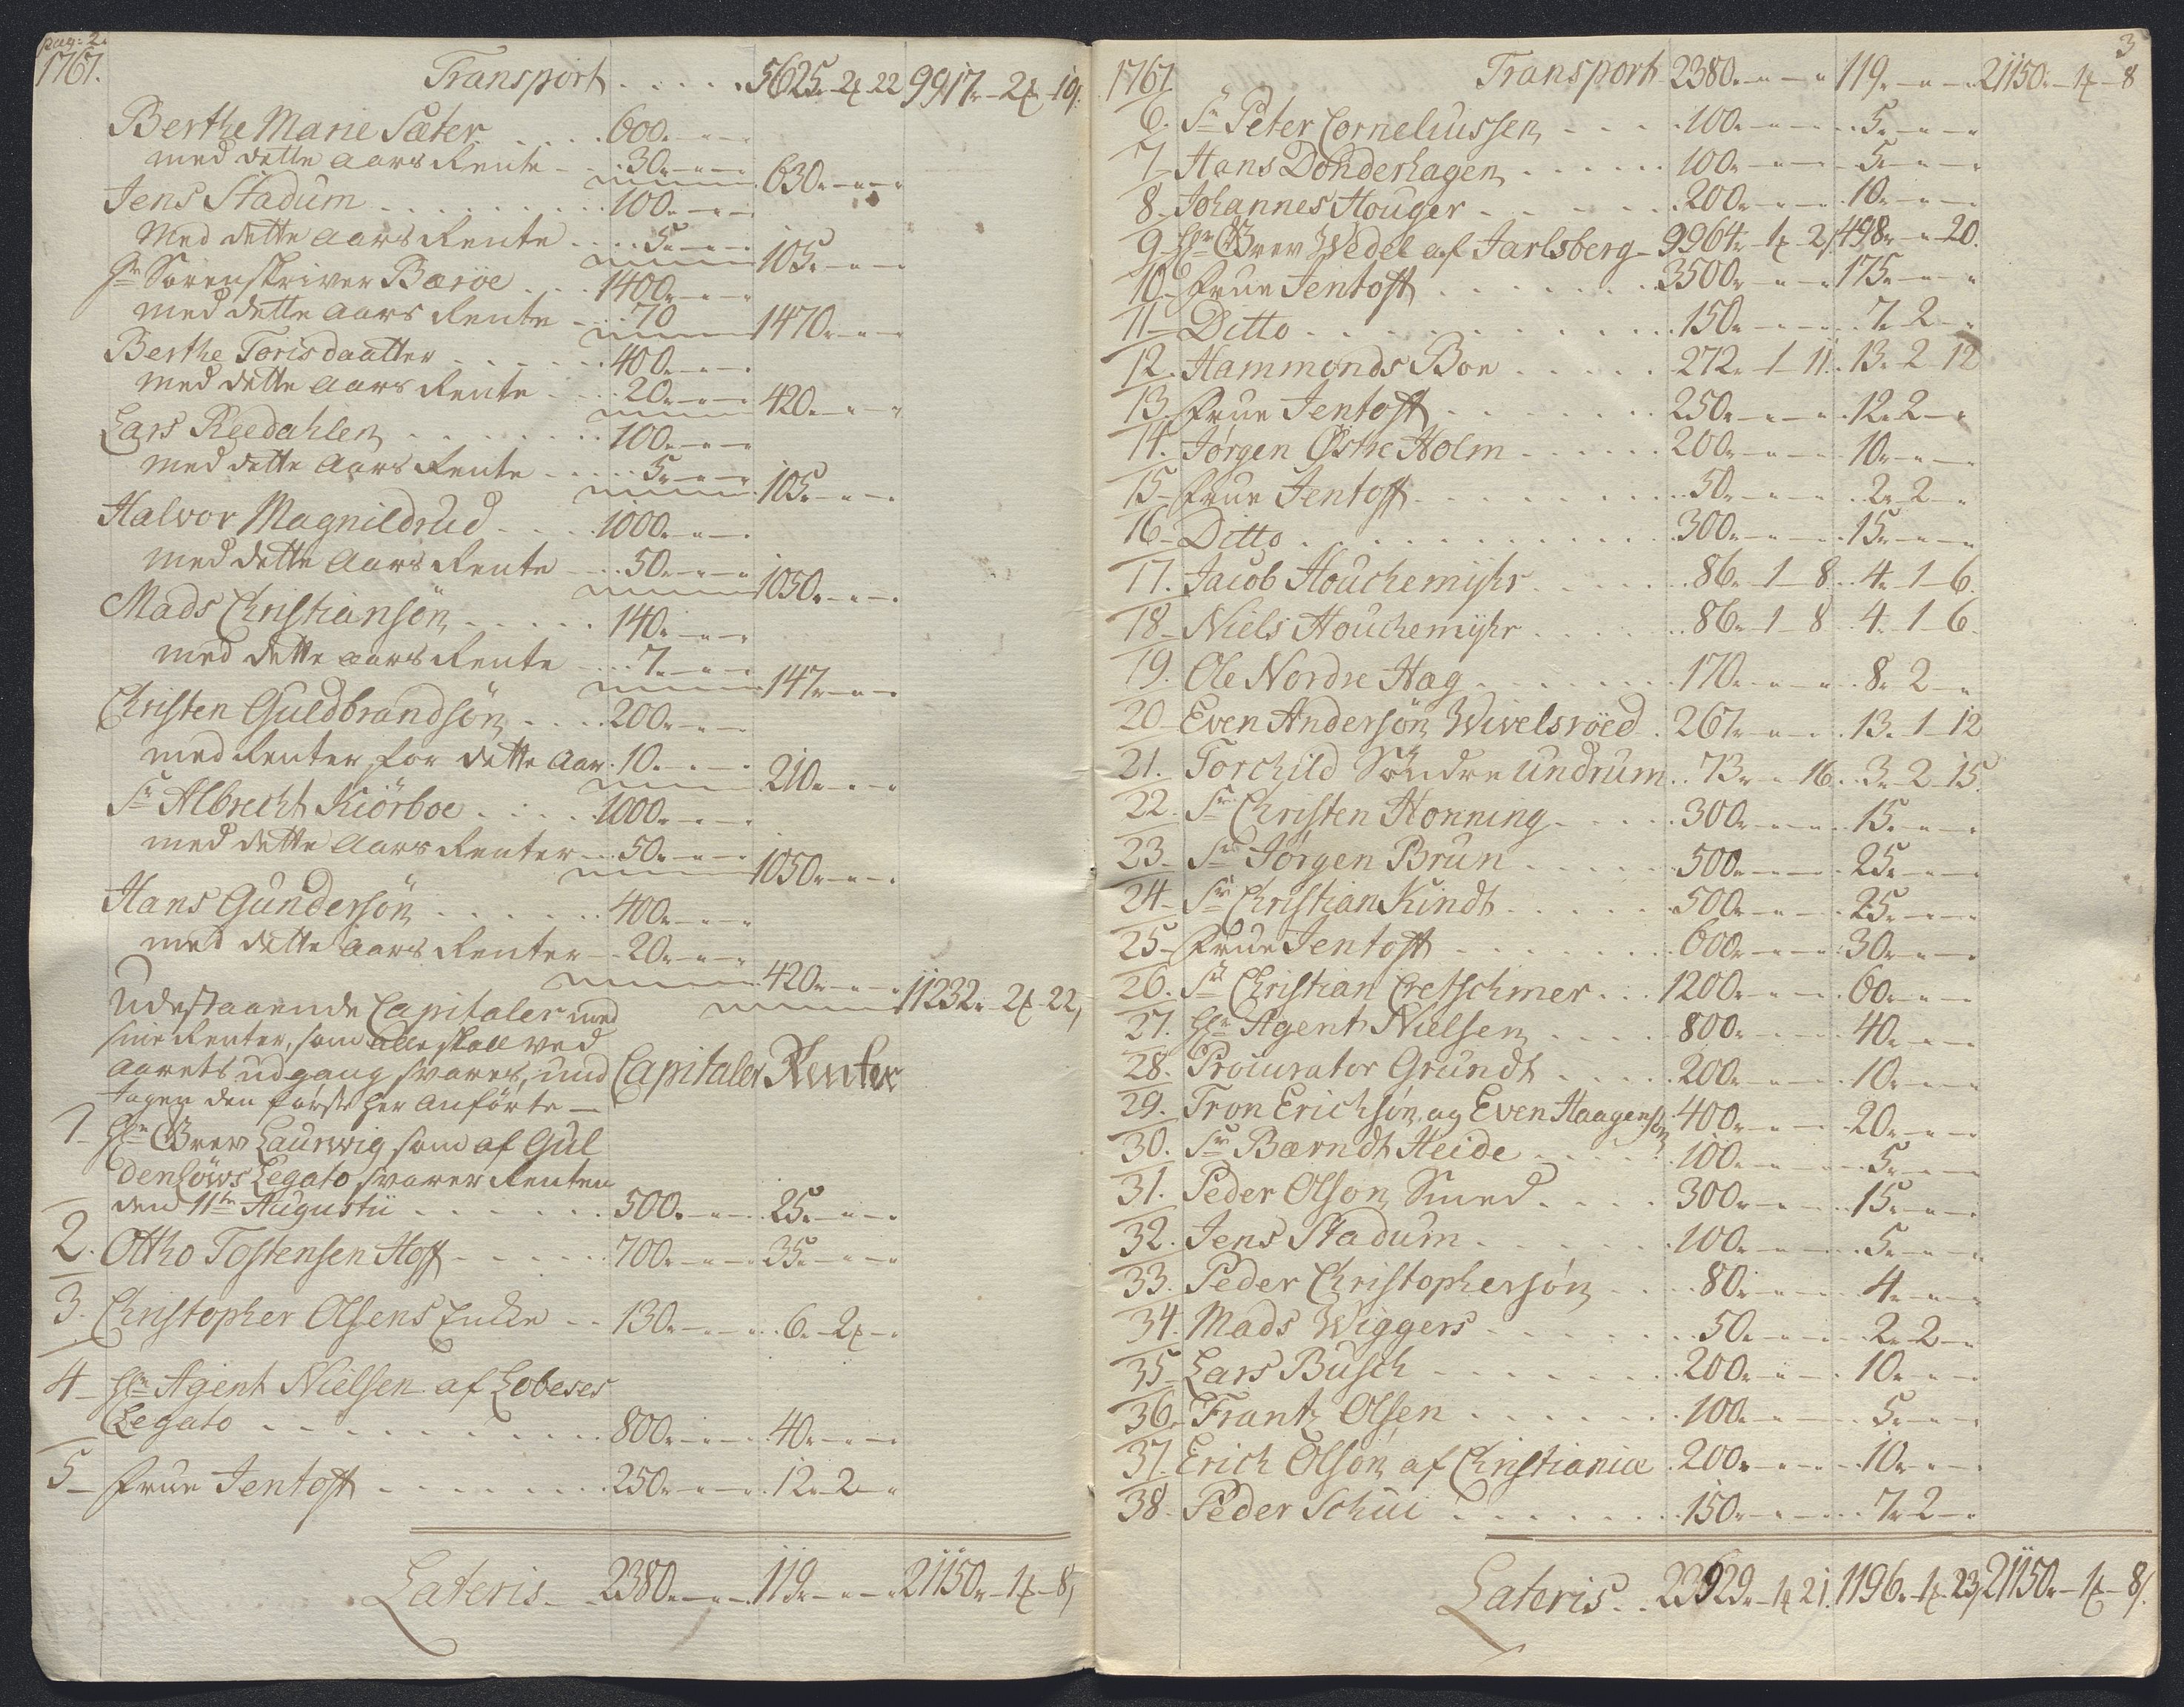 pag: 2.
1767.
Transport . . . . . 5625.-2 22 9917.-2-10
Berthe Marie Sæter . . . . 600.-"-"
med dette Aars Rente - . . 30.-"-" 630.-"-"
Jens Stadum . . . . . . 100.-"-"
Med dette Aars Rente . . . 5.-"-" 105.-"-"
Hr Sorenskriver Bæröe . . . 1400.-"-"
med dette Aars Rente - . . 70 1470.-"-"
Berthe Torisdaatter . . . . 400.-"-"
med dette Aars Rente . . . 20.-"-" 420.-"-"
Lars Reedahlen . . . . . . 100.-"-"
med dette Aars Rente - . . . 5.-"-" 105.-"-"
Halvor Magnildrud - . . . 1000.-"-"
med dette Aars Rente - . . 50.-"-" 1050.-"-"
Mads Christiansön . . . . . 140.-"-"
med dette aars Rente - . . . 7.-"-" 147.-"-"
Christen Guldbrandsön . . . 200.-"-"
med Renter for dette Aar . 10.-"-" 210.-"-"
Sr Albrecht Kiörboe . . . . 1000.-"-"
med dette Aars Renter - . . 50.-"-" 1050.-"-"
Hans Gundersön . . . . . . 400.-"-"
med dette Aars Renter - . . 20.-"-" 420.-"-" 11232.-2-22
Udestaaende Capitaler med
sine Renter, som alle skall ved
Aarets udgang svares, und Capitaler Renter
tagen den förste her Anförte -
1- Hr Grev Laurwig som af Gül
denlöws Legato svarer Renten
den 11te Augustii . . . . . . 500.-"-" 25.-"-"
2. Ottho Tostensen Hoff - . . . 700.-"-" 35.-"-"
3. Christopher Olsens Encke - . . 130.-"-" 6.-2-"
4- Hr Agent Nielsen af Lobeses
Legato . . . . . . . . . 800.-"-" 40.-"-"
5- Frue Jentoft . . . . . . . 250.-"-" 12.-2-"
Lateris - 2380.-"-" 119.-"-" 21150.-1-8
3
1767 Transport 2380.-"-" 119.-"-" 21150.-1-8
6. Sr Peter Corneliussen - . . . 100.-"-" 5.-"-"
7- Hans Donderhagen . . . . . 100.-"-" 5.-"-"
8- Johannes Houger . . . . . 200.-"-" 10.-"-"
9- Hr Grev Wedel af Jarlsberg - 9964.-1-21 498.-"-20.
10- Frue Jentoft . . . . . . . 3500.-"-" 175.-"-"
11- Ditto . . . . . . . . . . 150.-"-" 7.-2-"
12. Hammonds Boe . . . . . 272.-1-11. 13.-2-12
13. Frue Jentoft . . . . . . . 250.-"-" 12.-2-"
14. Jørgen Østre Holm - . . . . 200.-"-" 10.-"-"
15- Frue Jentoft . . . . . . . 50.-"-" 2.-2-"
16- Ditto . . . . . . . . . . 300.-"-" 15.-"-"
17. Jacob Houchemyhr . . . . 86.-1-8. 4.-1-6.
18- Niels Houchemyhr . . . . . 86.-1-8 4.-1-6.
19. Ole Nordre Hag . . . . . . 170.-"-" 8.-2-"
20- Even Andersön Wivelsröed . 267.-"-" 13.-1-12
21. Torchild Söndre Undrum . . 73.-"-16. 3.-2-15.
22- Sr Christen Honning . . . . 300.-"-" 15.-"-"
23- Sr Jörgen Brun . . . . . . 500.-"-" 25.-"-"
24- Sr Christian Kindt . . . . . 500.-"-" 25.-"-"
25- Frue Jentoft . . . . . . . 600.-"-" 30.-"-"
26. Sr Christian Cretschmer . . . 1200.-"-" 60.-"-"
27. Hr Agent Nielsen . . . . . 800.-"-" 40.-"-"
28. Procurator Grundt . . . . . 200.-"-" 10.-"-"
29. Tron Erichsön og Even Haagensön 400.-"-" 20.-"-"
30. Sr Bærndt Heide . . . . . 100.-"-" 5.-"-"
31. Peder Olson Smed . . . . 300.-"-" 15.-"-"
32. Jens Stadum . . . . . . . 100.-"-" 5.-"-"
33. Peder Christophersön . . . . 80.-"-" 4.-"-"
34. Mads Wiggers . . . . . . 50.-"-" 2.-2-"
35- Lars Busch . . . . . . . 200.-"-" 10.-"-"
36. Frantz Olsen . . . . . . . 100.-"-" 5.-"-"
37. Erich Olsön af Christiania 200.-"-" 10.-"-"
38- Peder Schui . . . . . . . 150.-"-" 7.-2-"
Lateris . . 23929.-1-21. 1196.-1-23 21150.-1-8